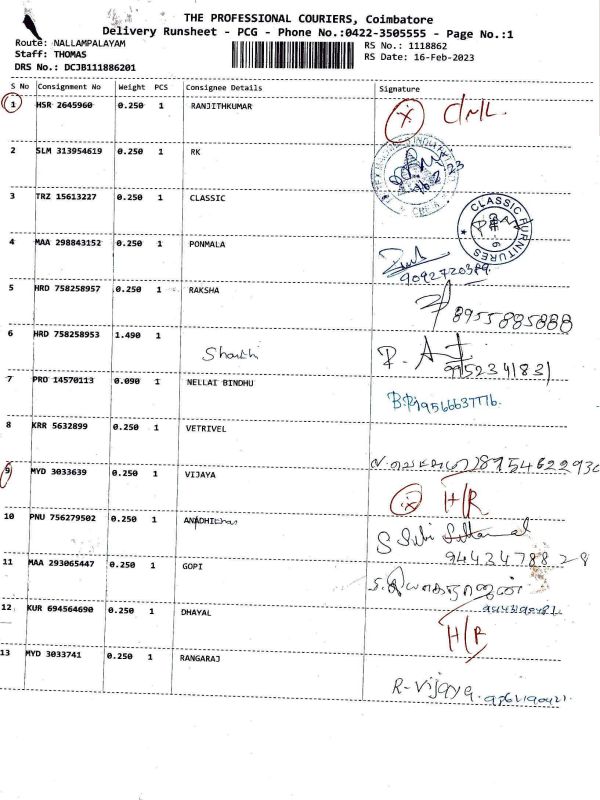 THE PROFESSIONAL COURIERS, Coimbatore
Delivery Runsheet - PCG - Phone No.:0422-3505555 - Page No.:1
Route: NALLAMPALAYAM
RS No.: 1118862
Staff: THOMAS
RS Date: 16-Feb-2023
DRS No.: DCJB111886201
S No Consignment No Weight PCS Consignee Details Signature
1 HSR 2645960 0.250 1 RANJITHKUMAR
2 SLM 313954619 0.250 1 RK
3 TRZ 15613227 0.250 1 CLASSIC
CLASSIC FURNITURES
4 MAA 298843152 0.250 1 PONMALA
9092720389
5 HRD 758258957 0.250 1 RAKSHA
8955885888
6 HRD 758258953 1.490 1
7 PRO 14570113 0.090 1 NELLAI BINDHU
9566637776.
8 KRR 5632899 0.250 1 VETRIVEL
9 MYD 3033639 0.250 1 VIJAYA
H/R
10 PNU 756279502 0.250 1
9443478828
11 MAA 293065447 0.250 1 GOPI
12 KUR 694564690 0.250 1 DHAYAL
H/R
13 MYD 3033741 0.250 1 RANGARAJ
R-Vijaya